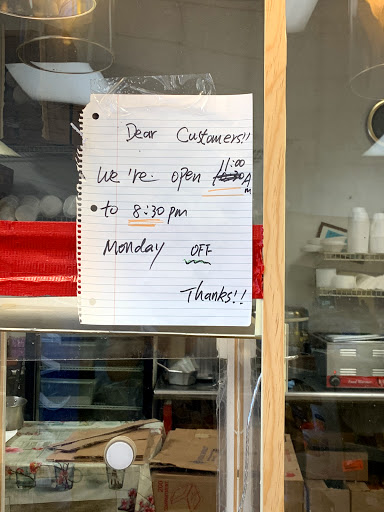 Dear Customers!!
We're open 11:00 AM
to 8:30 pm
Monday OFF
Thanks!!